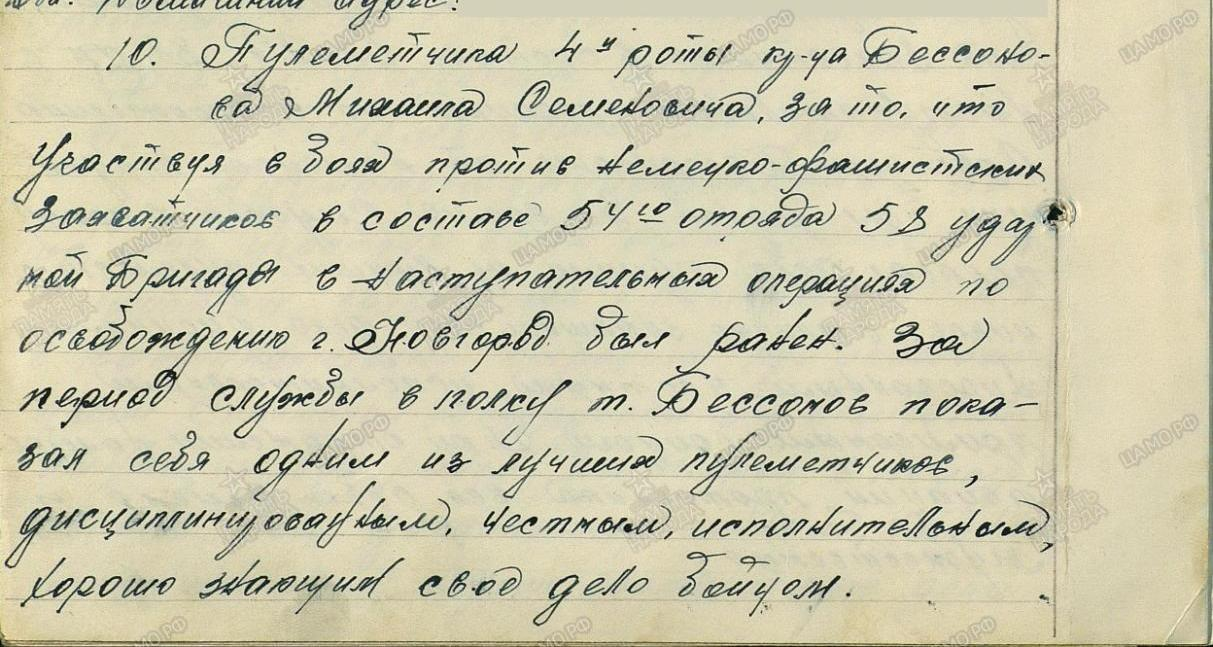 Домашний адрес:
10. Пулеметчика 4й роты кр-ца Бессоно-
ва Михаила Семеновича, за то, что
Участвуя в боях против немецко-фашистских
захватчиков в составе 54го отряда 58 удар
ной Бригады в наступательных операциях по
освобождению г. Новгород был ранен. За
период службы в полку т. Бессонов пока-
зал себя одним из лучших пулеметчиков,
дисциплинированным, честным, исполнительным,
хорошо знающим свое дело бойцом.